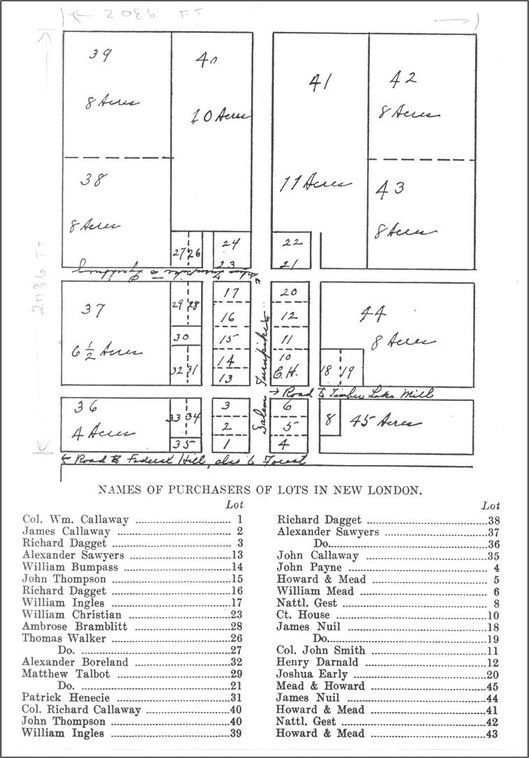 2086 FT
2086 FT
39
8 Acres
40
10 Acres
41
11 Acres
42
8 Acres
38
8 Acres
43
8 Acres
27 26
24
23
22
21
37
6 1/2 Acres
29 28
30
32 31
17
16
15
14
13
20
12
11
10
C.H.
44
8 Acres
18 19
Salem Turnpike
→ Road to Timber Lake Mill
36
4 Acres
33 34
35
3
2
1
6
5
4
8
45 Acres
Road to Federal Hill, also to Forest
NAMES OF PURCHASERS OF LOTS IN NEW LONDON.
Lot
Col. Wm. Callaway 1
James Callaway 2
Richard Dagget 3
Alexander Sawyers 13
William Bumpass 14
John Thompson 15
Richard Dagget 16
William Ingles 17
William Christian 23
Ambrose Bramblitt 28
Thomas Walker 26
Do. 27
Alexander Boreland 32
Matthew Talbot 29
Do. 21
Patrick Henecie 31
Col. Richard Callaway 40
John Thompson 40
William Ingles 39
Lot
Richard Dagget 38
Alexander Sawyers 37
Do. 36
John Callaway 35
John Payne 4
Howard & Mead 5
William Mead 6
Nattl. Gest 8
Ct. House 10
James Nuil 18
Do. 19
Col. John Smith 11
Henry Darnald 12
Joshua Early 20
Mead & Howard 45
James Nuil 44
Howard & Mead 41
Nattl. Gest 42
Howard & Mead 43